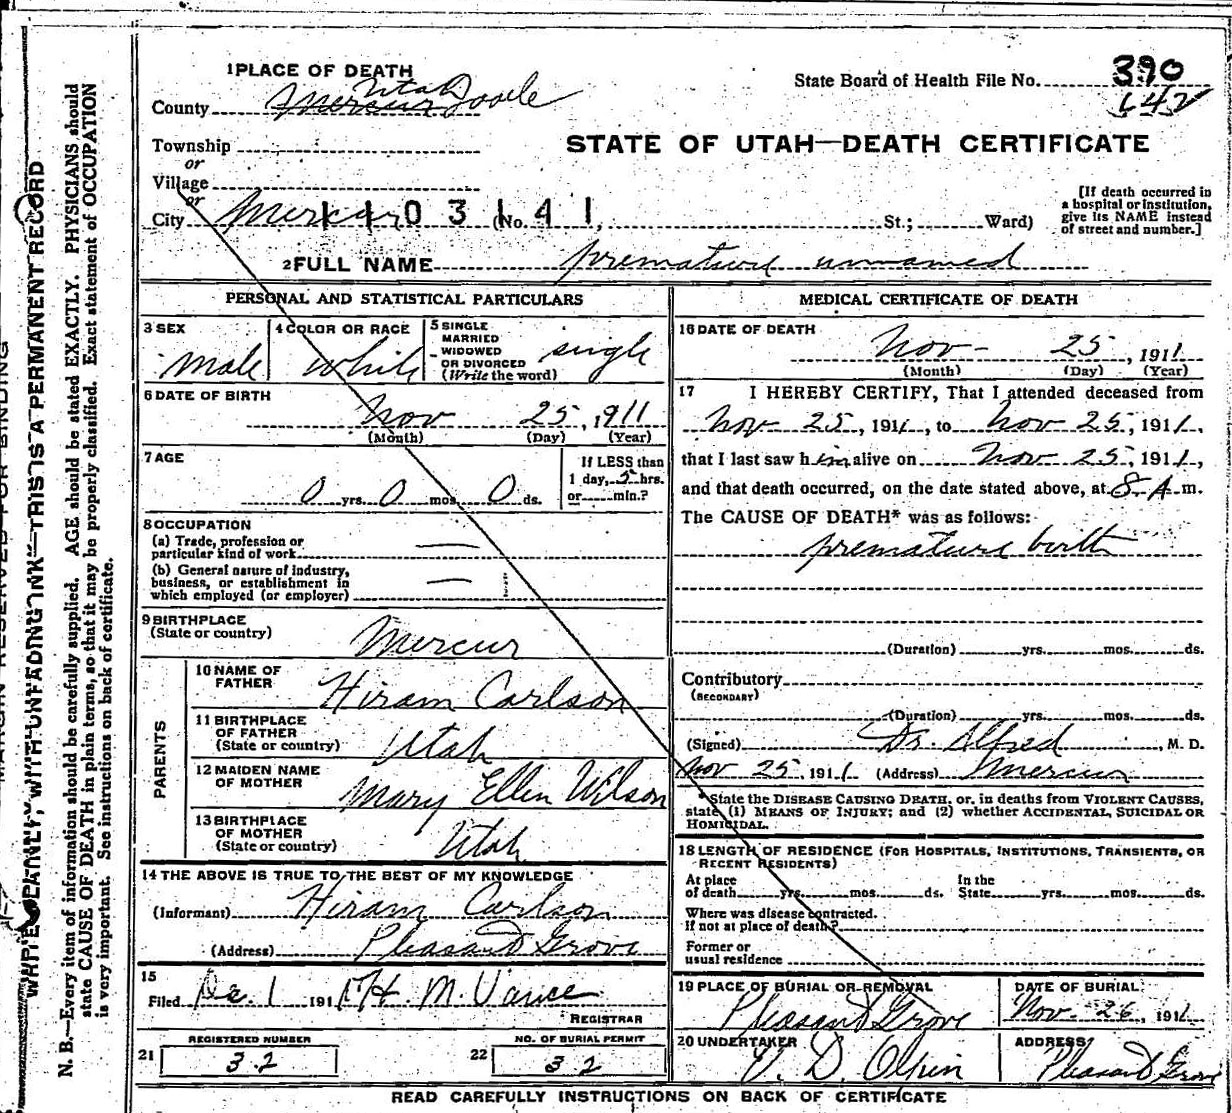 1 PLACE OF DEATH
State Board of Health File No. 390
Utah
County Mercur Tooele
642
Township
STATE OF UTAH—DEATH CERTIFICATE
or
Village
or
City Mercur 1103141 (No. , St.; Ward)
[If death occurred in
a hospital or institution,
give its NAME instead
of street and number.]
2 FULL NAME premature unnamed
PERSONAL AND STATISTICAL PARTICULARS
3 SEX
male
4 COLOR OR RACE
white
5 SINGLE
MARRIED
WIDOWED
OR DIVORCED
(Write the word)
single
6 DATE OF BIRTH
Nov 25, 1911
(Month) (Day) (Year)
7 AGE
0 yrs. 0 mos. 0 ds.
If LESS than
1 day, 5 hrs.
or min.?
8 OCCUPATION
(a) Trade, profession or
particular kind of work —
(b) General nature of industry,
business, or establishment in
which employed (or employer) —
9 BIRTHPLACE
(State or country) Mercur
PARENTS
10 NAME OF
FATHER Hiram Carlson
11 BIRTHPLACE
OF FATHER
(State or country) Utah
12 MAIDEN NAME
OF MOTHER Mary Ellen Wilson
13 BIRTHPLACE
OF MOTHER
(State or country) Utah
14 THE ABOVE IS TRUE TO THE BEST OF MY KNOWLEDGE
(Informant) Hiram Carlson
(Address) Pleasant Grove
15
Filed Dec 1 1911 H. M. Vance
REGISTRAR
REGISTERED NUMBER
21 32
NO. OF BURIAL PERMIT
22 32
MEDICAL CERTIFICATE OF DEATH
16 DATE OF DEATH
Nov - 25, 1911
(Month) (Day) (Year)
17 I HEREBY CERTIFY, That I attended deceased from
Nov 25, 1911, to Nov 25, 1911,
that I last saw him alive on Nov 25, 1911,
and that death occurred, on the date stated above, at 8 A. m.
The CAUSE OF DEATH* was as follows:
premature birth
(Duration) yrs. mos. ds.
Contributory
(SECONDARY)
(Duration) yrs. mos. ds.
(Signed) Dr. Alfred, M. D.
Nov 25 1911 (Address) Mercur
*State the DISEASE CAUSING DEATH, or, in deaths from VIOLENT CAUSES,
state (1) MEANS OF INJURY; and (2) whether ACCIDENTAL, SUICIDAL OR
HOMICIDAL.
18 LENGTH OF RESIDENCE (FOR HOSPITALS, INSTITUTIONS, TRANSIENTS, OR
RECENT RESIDENTS)
At place
of death yrs. mos. ds.
In the
State yrs. mos. ds.
Where was disease contracted.
If not at place of death?
Former or
usual residence
19 PLACE OF BURIAL OR REMOVAL
Pleasant Grove
DATE OF BURIAL
Nov. 26, 1911
20 UNDERTAKER
ADDRESS
Pleasant Grove
READ CAREFULLY INSTRUCTIONS ON BACK OF CERTIFICATE
MARGIN RESERVED FOR BINDING
WRITE PLAINLY, WITH UNFADING INK—THIS IS A PERMANENT RECORD
N. B.—Every item of information should be carefully supplied. AGE should be stated EXACTLY. PHYSICIANS should
state CAUSE OF DEATH in plain terms, so that it may be properly classified. Exact statement of OCCUPATION
is very important. See instructions on back of certificate.